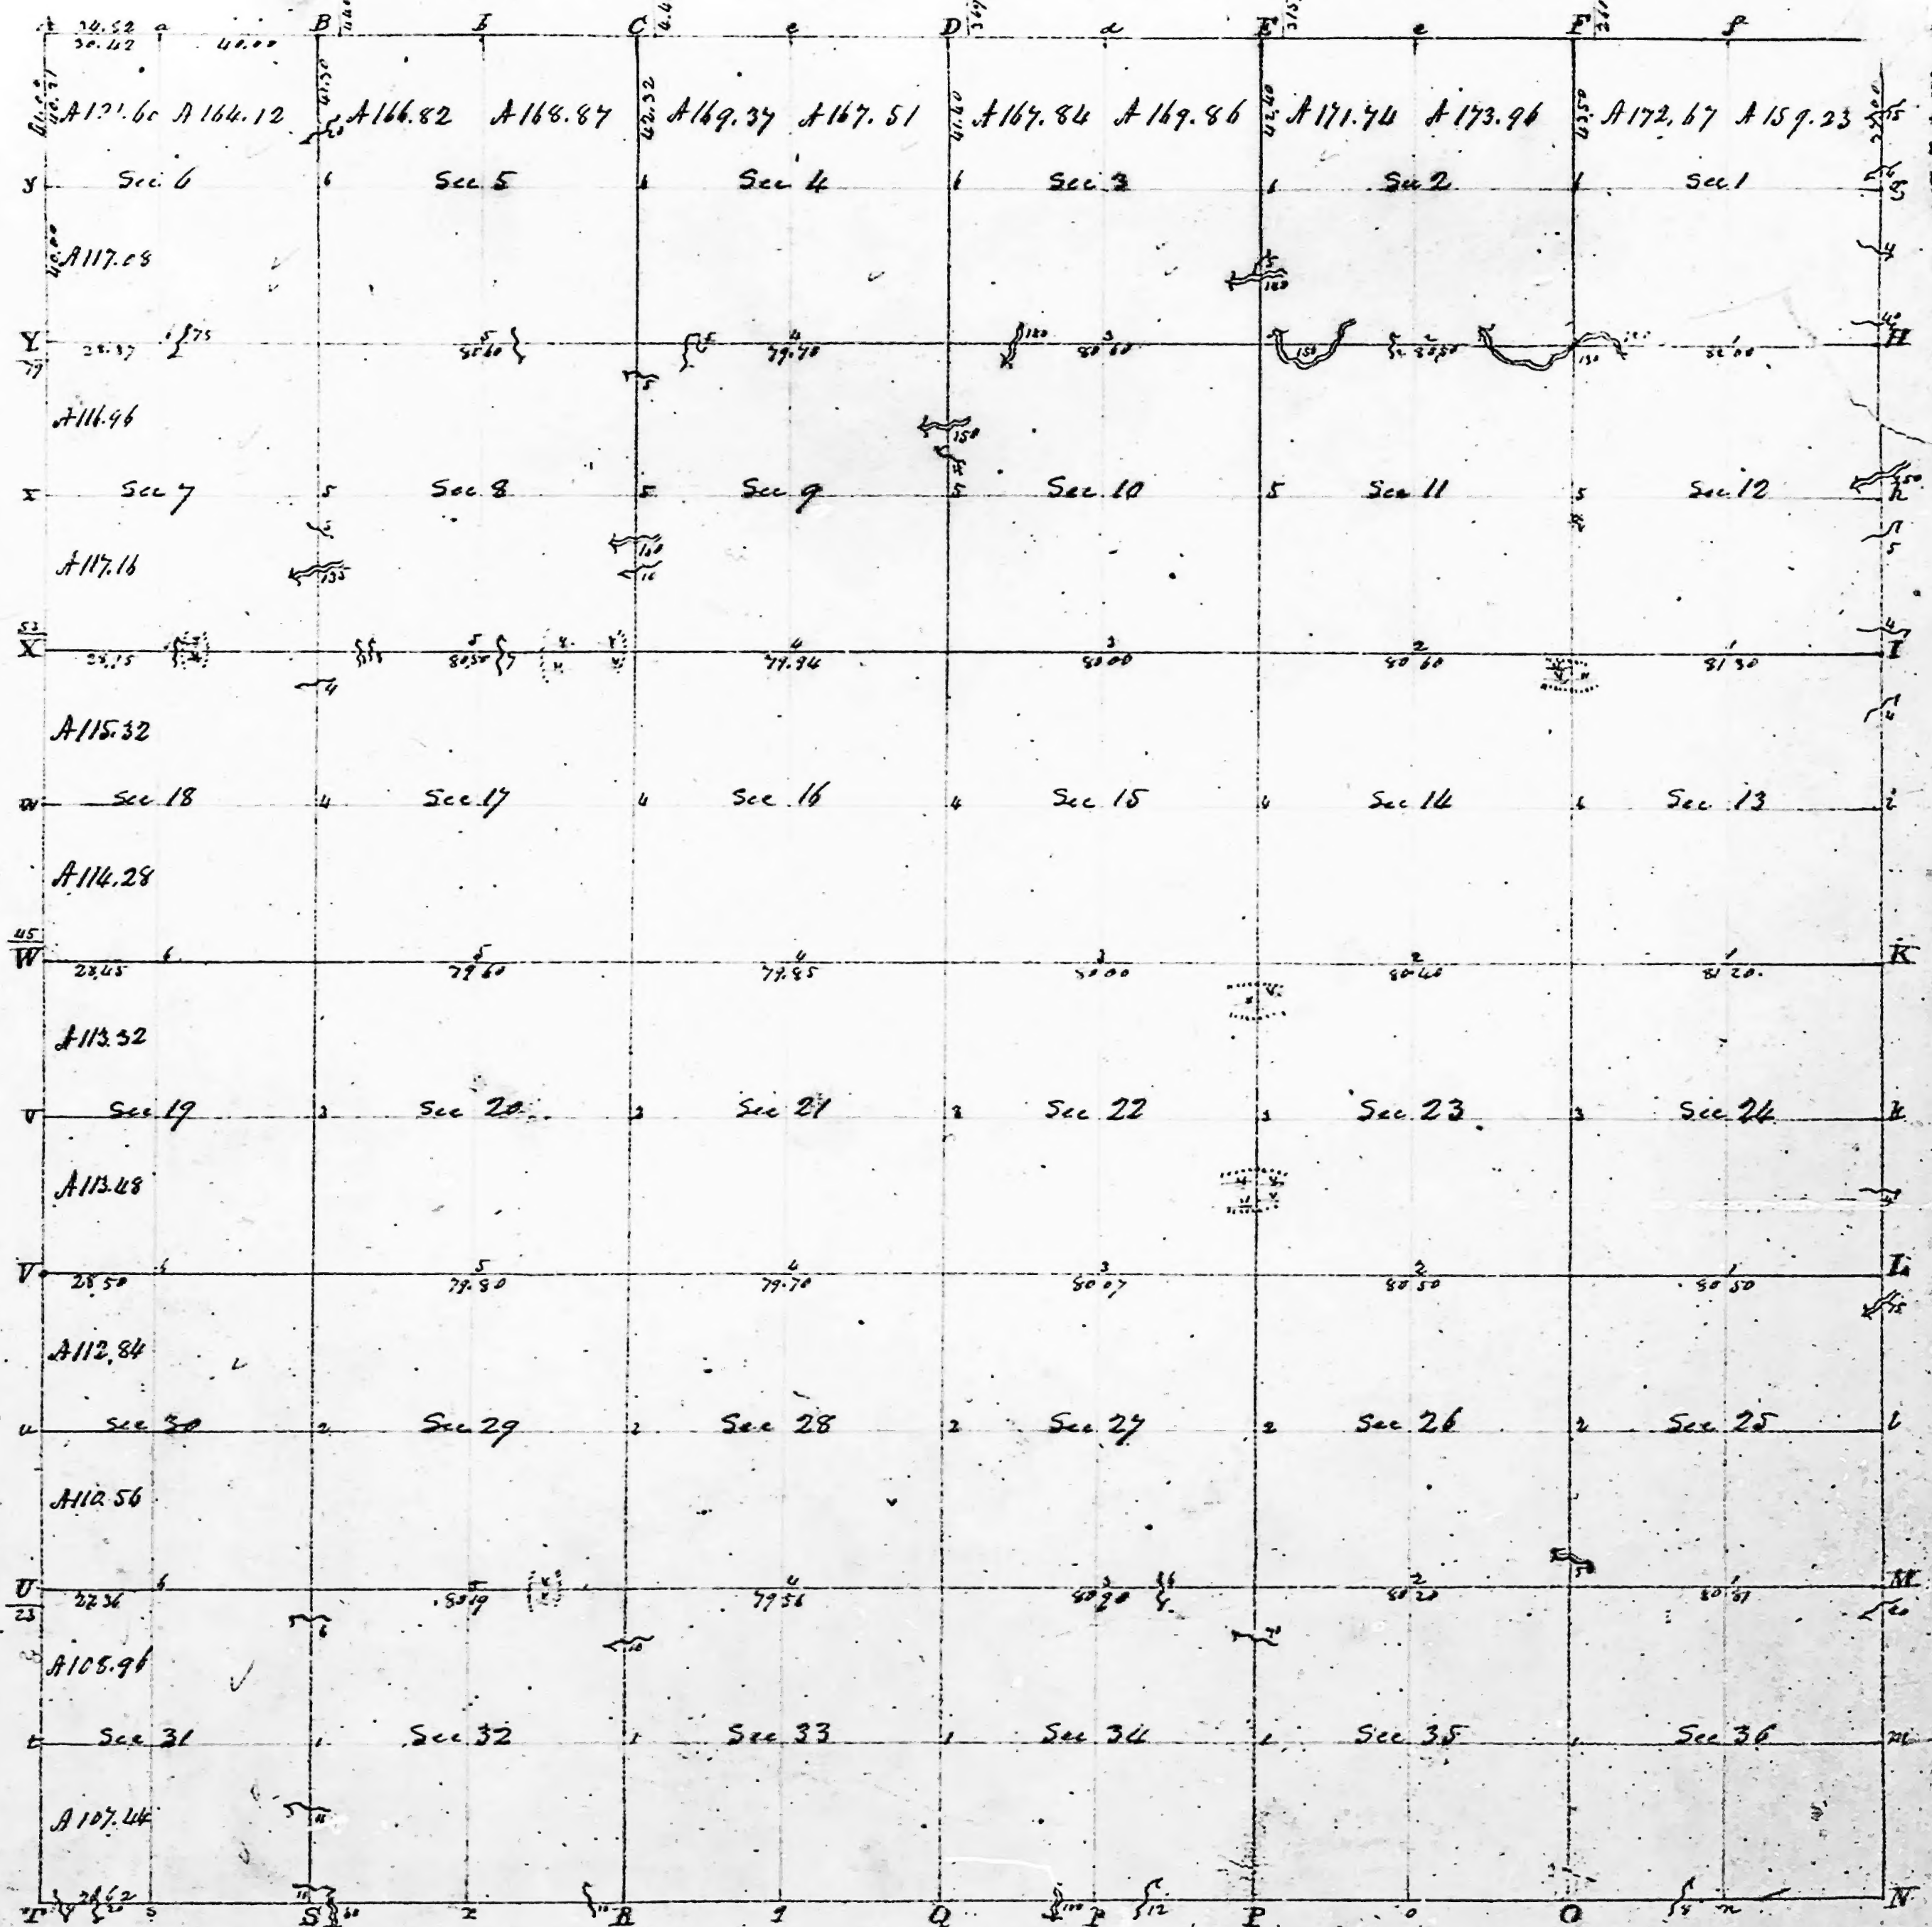 A B C D E F
34.52 a b c d e f
30.42 40.00
41.50 42.32 41.70 42.40
A 164.12 A 166.82 A 168.87 A 169.37 A 167.51 A 167.84 A 169.86 A 171.74 A 173.96 A 172.67 A 159.23
y Sec 6 6 Sec 5 6 Sec 4 6 Sec 3 6 Sec 2 6 Sec 1 g
40.00
A 117.08 4
5
180
Y 28.37 6 75 5 80 60 5 4 79.70 180 3 80 60 150 2 80.50 130 1 82 00 H
79
5
A 116.96 150
x Sec 7 5 Sec 8 5 Sec 9 5 Sec 10 5 Sec 11 5 Sec 12 h
5
A 117.16 135 10 5
53
X 28.15 5 80.50 7 4 79.94 3 80 00 2 80 60 1 81 30 I
4
A 115.32 4
w Sec 18 4 Sec 17 4 Sec 16 4 Sec 15 4 Sec 14 4 Sec 13 i
A 114.28
45
W 28.45 6 5 79 60 4 79.85 3 80 00 2 80 40 1 81 20 K
A 113.32
v Sec 19 3 Sec 20 3 Sec 21 3 Sec 22 3 Sec 23 3 Sec 24 k
A 113.48
V 28 50 6 5 79.80 4 79.70 3 80 07 2 80 50 1 80 50 L
15
A 112.84
u Sec 30 2 Sec 29 2 Sec 28 2 Sec 27 2 Sec 26 2 Sec 25 l
A 110.56
50
U 27.36 6 5 80 19 4 79 56 3 80 90 6 2 80 20 1 80 81 M
23
6 10
A 108.96
t Sec 31 1 Sec 32 1 Sec 33 1 Sec 34 1 Sec 35 1 Sec 36 m
A 107.44
T 20 s S 60 r R q Q 100 p 12 P o O n N